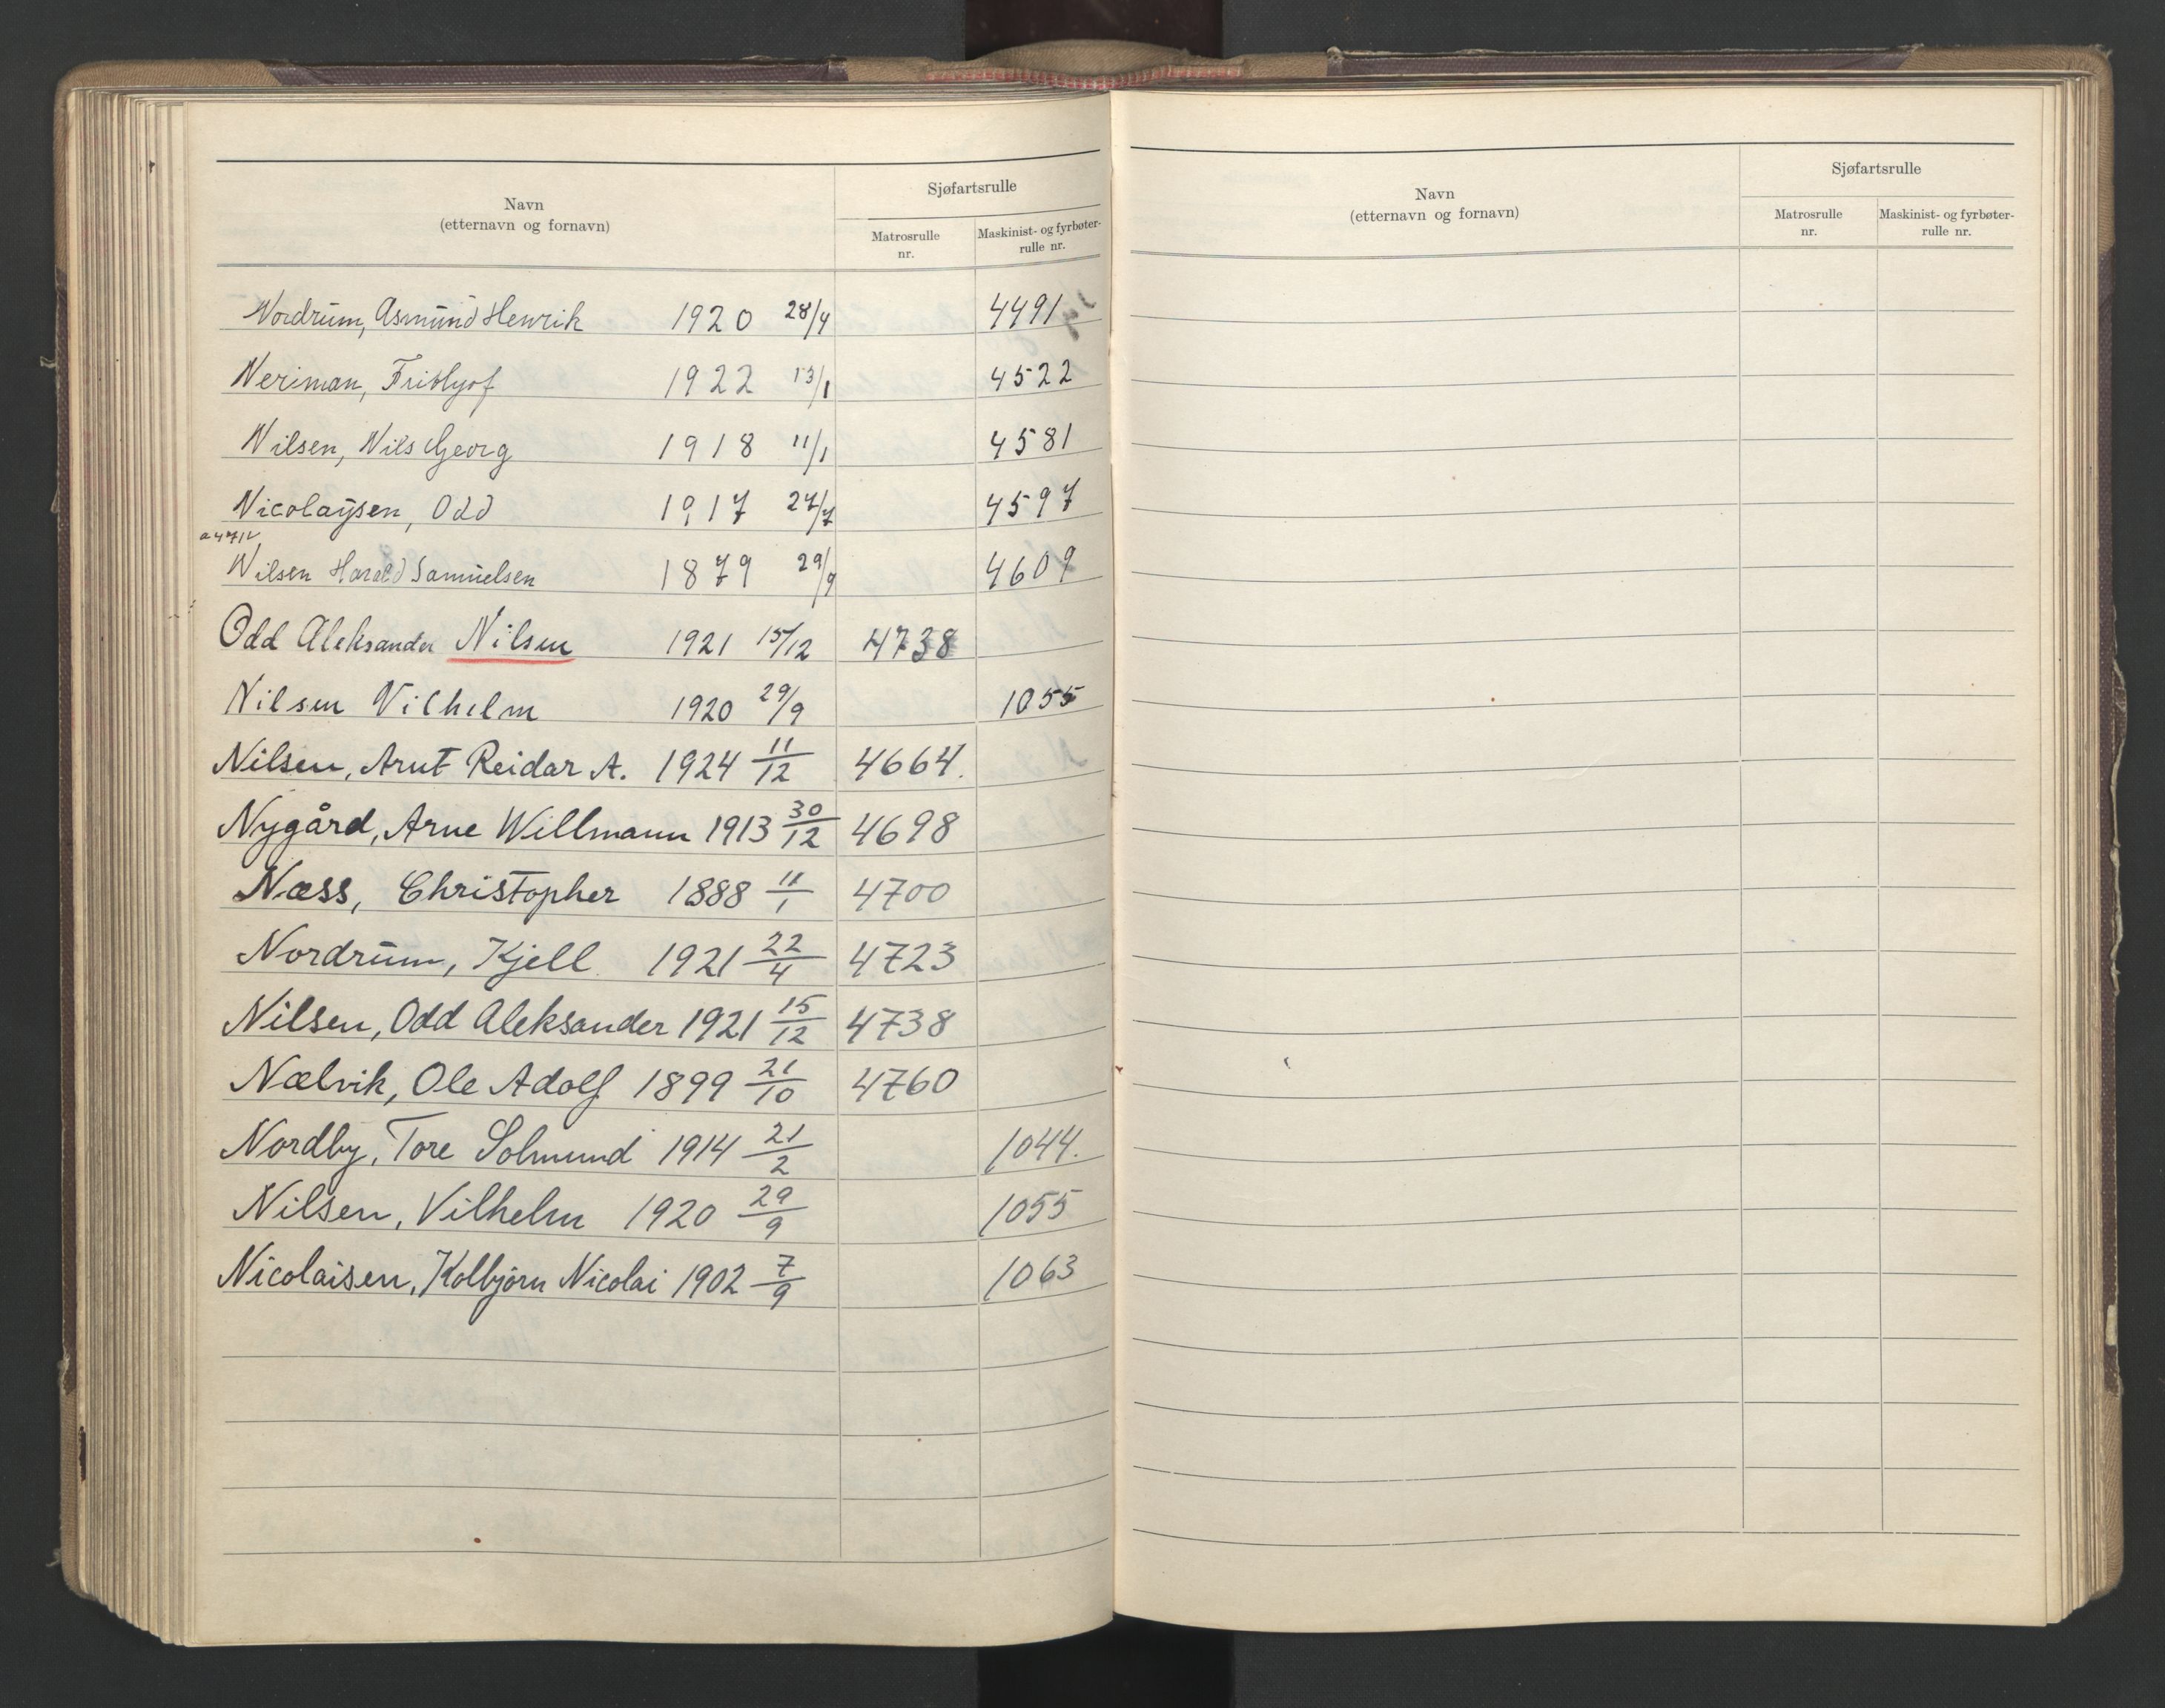 Navn
(etternavn og fornavn)
Sjøfartsrulle
Matrosrulle nr.
Maskinist- og fyrbøter-rulle nr.
Nordrum, Asmund Henrik 1920 28/4 4491
Neriman, Fridtjof 1922 13/1 4522
Nilsen, Nils Georg 1918 11/1 4581
Nicolaysen, Odd 1917 27/7 4597
Nilsen Harald Samuelsen 1879 29/9 4609
Odd Aleksander Nilsen 1921 15/12 4738
Nilsen Vilhelm 1920 29/9 1055
Nilsen, Arnt Reidar A. 1924 11/12 4664.
Nygård, Arne Willmann 1913 30/12 4698
Næss, Christopher 1888 11/1 4700
Nordrum, Kjell 1921 22/4 4723
Nilsen, Odd Aleksander 1921 15/12 4738
Nælvik, Ole Adolf 1899 21/10 4760
Nordby, Tore Solmund 1914 21/2 1044.
Nilsen, Vilhelm 1920 29/9 1055
Nicolaisen, Kolbjørn Nicolai 1902 7/9 1063
Navn
(etternavn og fornavn)
Sjøfartsrulle
Matrosrulle nr.
Maskinist- og fyrbøter-rulle nr.